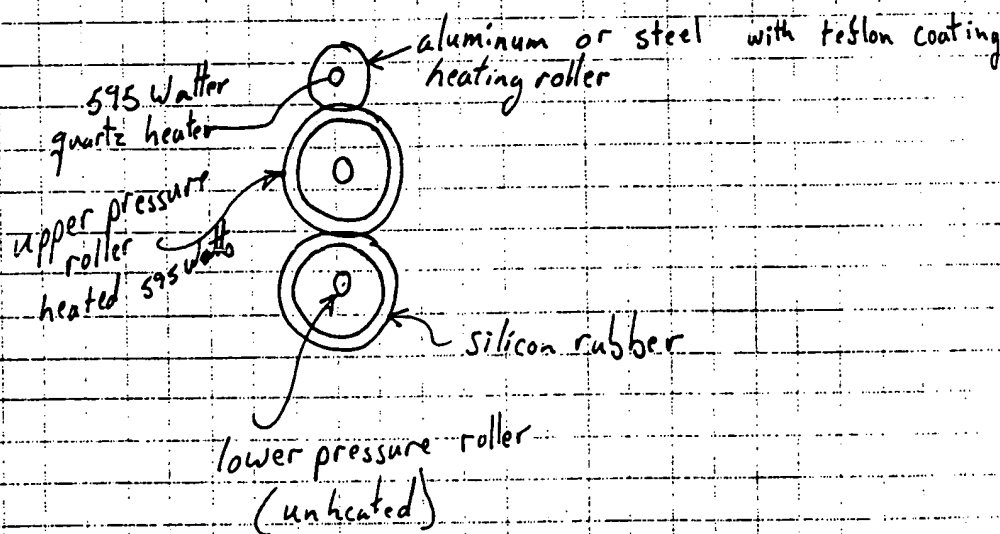 aluminum or steel with teflon coating
heating roller
595 Watter
quartz heater
upper pressure
roller
heated 595 watts
silicon rubber
lower pressure roller
(unheated)